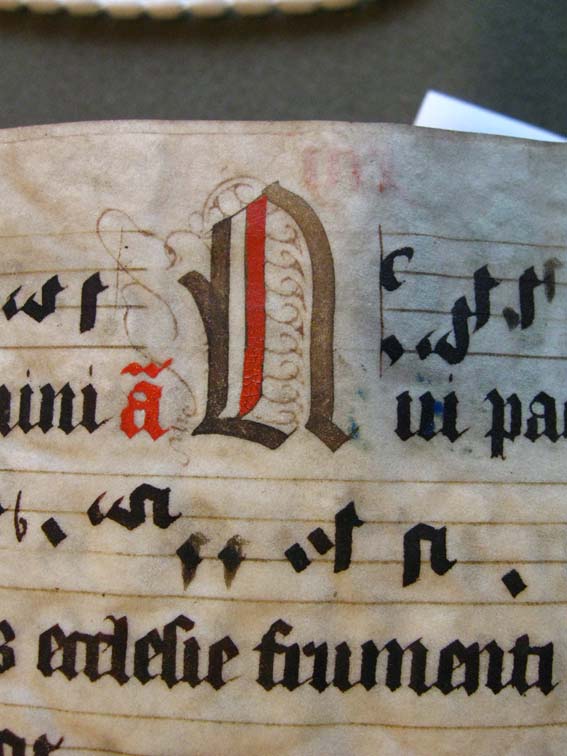 mini ã Qui pac
s ecclesie frumenti